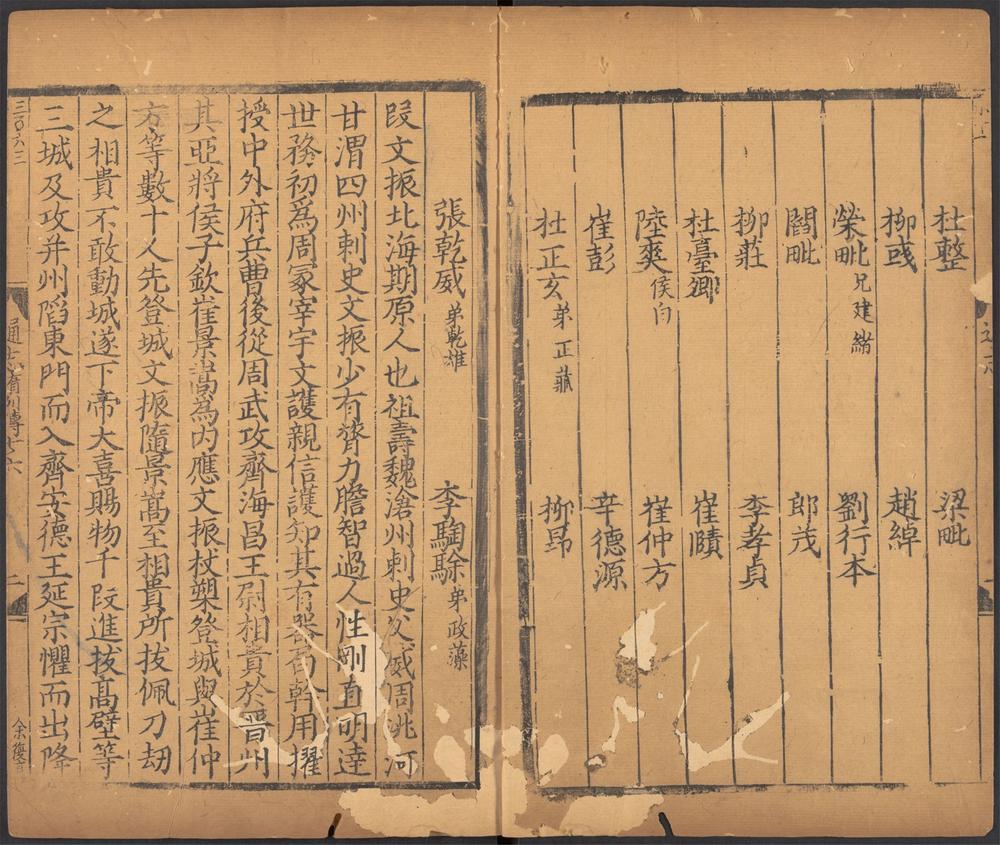 杜整 梁毗
柳彧 趙綽
榮毗兄建緒 劉行本
閻毗 郎茂
柳莊 李孝貞
杜臺卿 崔賾
陸爽侯白 崔仲方
崔彭 辛德源
杜正玄弟正藏 柳昂
張乾威弟乾雄 李騊駼弟政藻
叚文振北海期原人也祖壽魏滄州刺史父威周洮河
甘渭四州刺史文振少有膂力膽智過人性剛直明達
世務初爲周冢宰宇文護親信護知其有器局幹用擢
授中外府兵曹後從周武攻齊海昌王尉相貴於晋州
其亞將侯子欽崔景嵩爲内應文振杖槊登城與崔仲
方等數十人先登城文振隨景嵩至相貴所拔佩刀刼
之相貴不敢動城遂下帝大喜賜物千叚進拔高壁等
三城及攻并州陷東門而入齊安德王延宗懼而出降
三〇六三
二